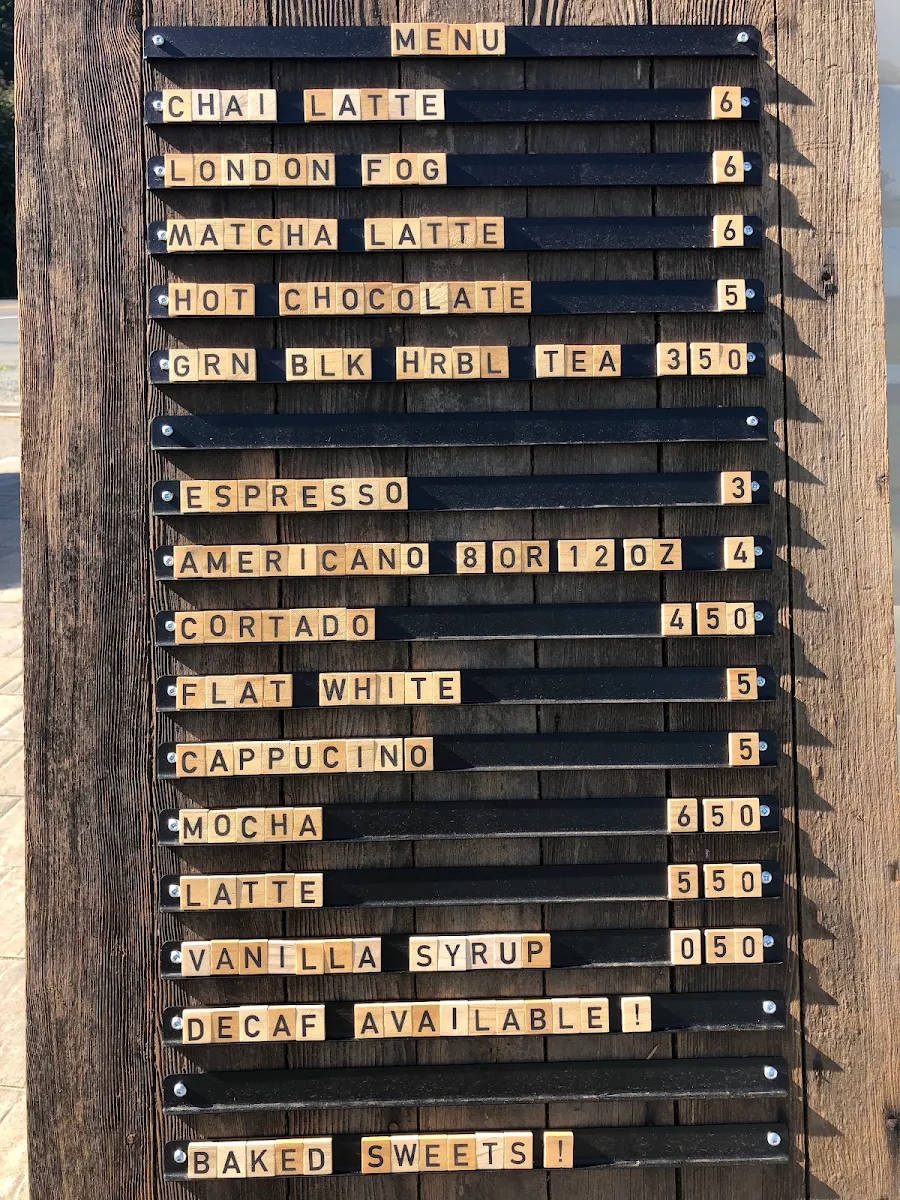 MENU
CHAI LATTE 6
LONDON FOG 6
MATCHA LATTE 6
HOT CHOCOLATE 5
GRN BLK HRBL TEA 3 50
ESPRESSO 3
AMERICANO 8 OR 12 OZ 4
CORTADO 4 50
FLAT WHITE 5
CAPPUCINO 5
MOCHA 6 50
LATTE 5 50
VANILLA SYRUP 0 50
DECAF AVAILABLE !
BAKED SWEETS !